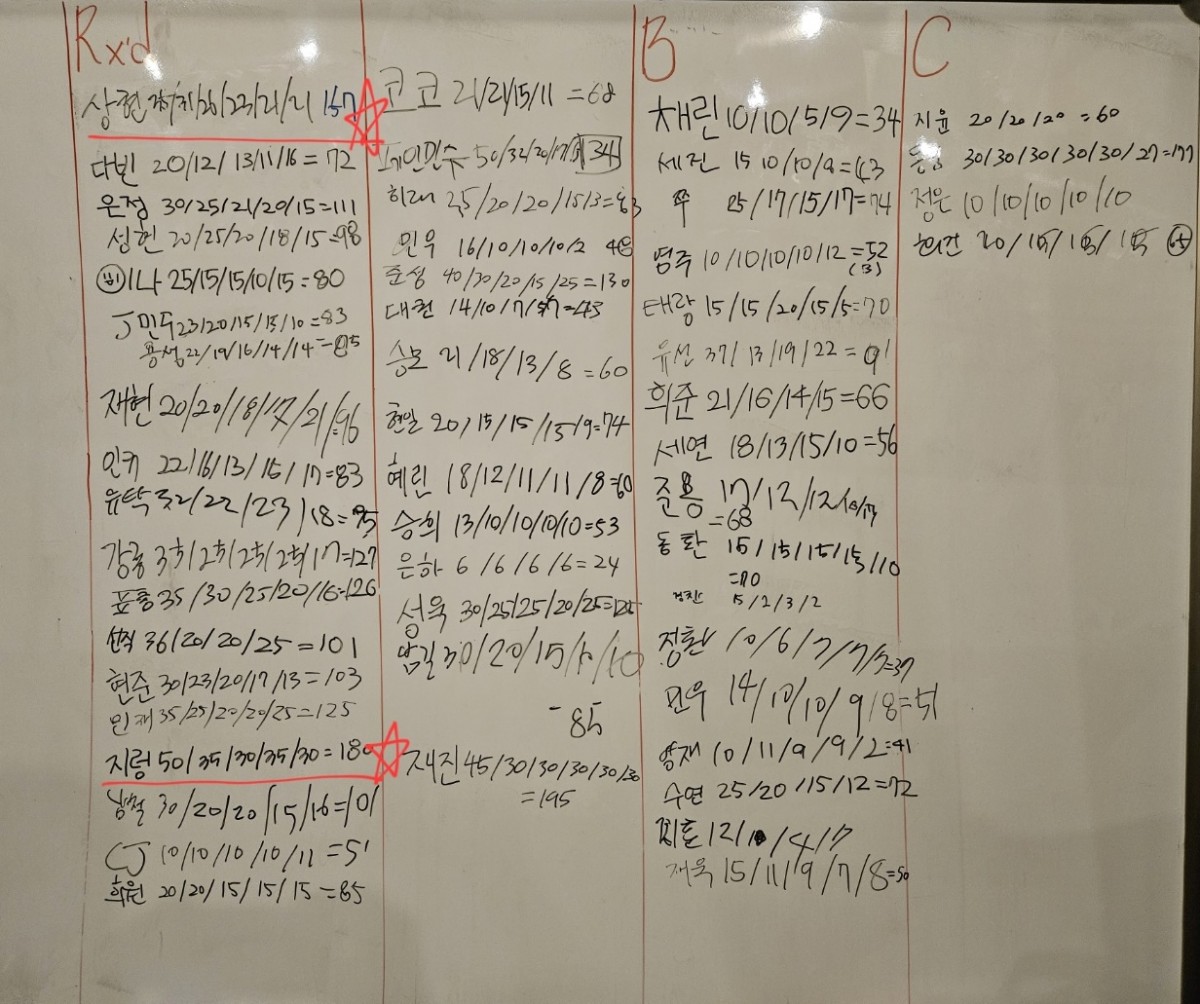 Rx'd
다빈 20/12/13/11/16=72
은정 30/25/21/20/15=111
성헌 20/25/20/18/15=98
나 25/15/15/10/15=80
J민수 23/20/15/15/10=83
22/19/16/14/14=85
재현 20/20/18/17/21/=96
인키 22/16/13/15/17=83
유탁 22/23/18=95
=127
표홍 35/30/25/20/16=126
36/20/20/25=101
현준 30/23/20/17/13=103
민재 35/25/20/20/25=125
지렁 50/35/30/35/30=180
30/20/20/15/16=101
CJ 10/10/10/10/11=51
희원 20/20/15/15/15=85
코코 21/21/15/11=68
50/32/20/17
25/20/20/15/3=83
민우 16/10/10/10/2 48
준성 40/30/20/15/25=130
대권 14/10/7/=43
승모 21/18/13/8=60
현일 20/15/15/15/9=74
혜린 18/12/11/11/8=60
승희 13/10/10/10/10=53
은하 6/6/6/6=24
성욱 30/25/25/20/25=125
30/20/15/10/10
=85
재진 45/30/30/30/30/30
=195
B
채린 10/10/5/9=34
세진 15 10/10/9=43
쭈 25/17/15/17=74
염주 10/10/10/10/12=52
(B)
태랑 15/15/20/15/5=70
유선 37/13/19/22=91
희준 21/16/14/15=66
세연 18/13/15/10=56
준용 17/12/12/10/17
=68
동환 15/15/15/15/10
=70
15/2/3/2
정환 10/6/7/7/7=37
민우 14/10/10/9/8=51
영재 10/11/9/9/2=41
수연 25/20/15/12=72
12/10/4/7
재욱 15/11/9/7/8=50
C
지윤 20/20/20=60
30/30/30/30/30/27=177
정은 10/10/10/10/10
20/15/15/15 65